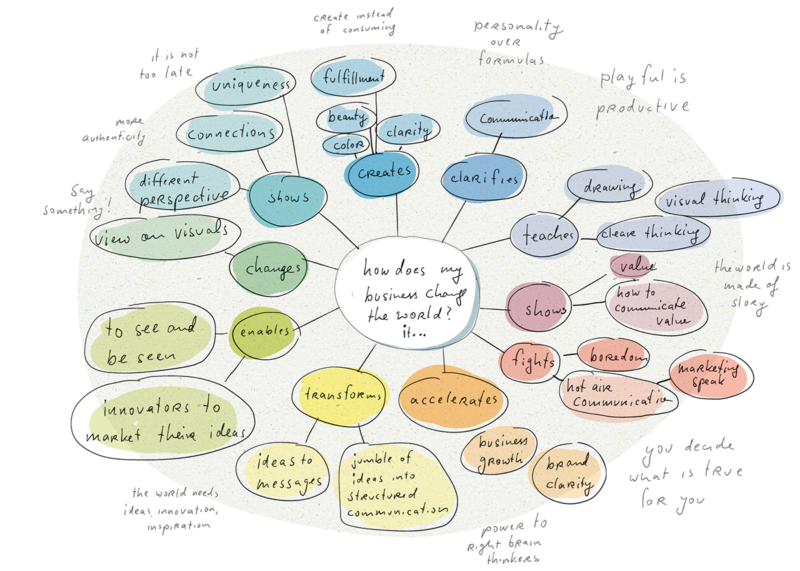 create instead
of consuming
personality
over
formulas
it is not
too late
uniqueness
fulfillment
playful is
productive
more
authenticity
connections
beauty
color
clarity
communication
creates
clarifies
different
perspective
shows
drawing
visual thinking
teaches
cleare thinking
Say
something!
view on visuals
changes
how does my
business change
the world?
it...
value
shows
how to
communicate
value
the world is
made of
story
to see and
be seen
enables
fights
boredom
hot air
communication
marketing
speak
innovators to
market their ideas
transforms
accelerates
ideas to
messages
jumble of
ideas into
structured
communication
business
growth
brand
clarity
you decide
what is true
for you
the world needs
ideas, innovation,
inspiration
power to
right brain
thinkers